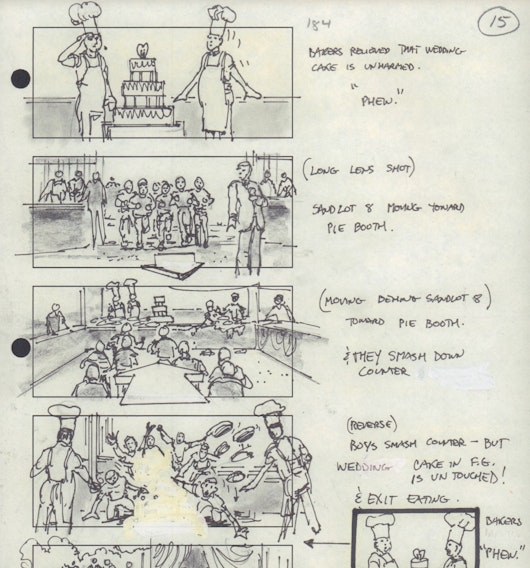 184
15
BAKERS RELIEVED THAT WEDDING
CAKE IS UNHARMED.
"PHEW."
(LONG LENS SHOT)
SANDLOT 8 MOVING TOWARD
PIE BOOTH.
(MOVING BEHIND SANDLOT 8)
TOWARD PIE BOOTH.
& THEY SMASH DOWN
COUNTER
(REVERSE)
BOYS SMASH COUNTER - BUT
WEDDING CAKE IN F.G.
IS UNTOUCHED!
& EXIT EATING.
BAKERS
"PHEW."